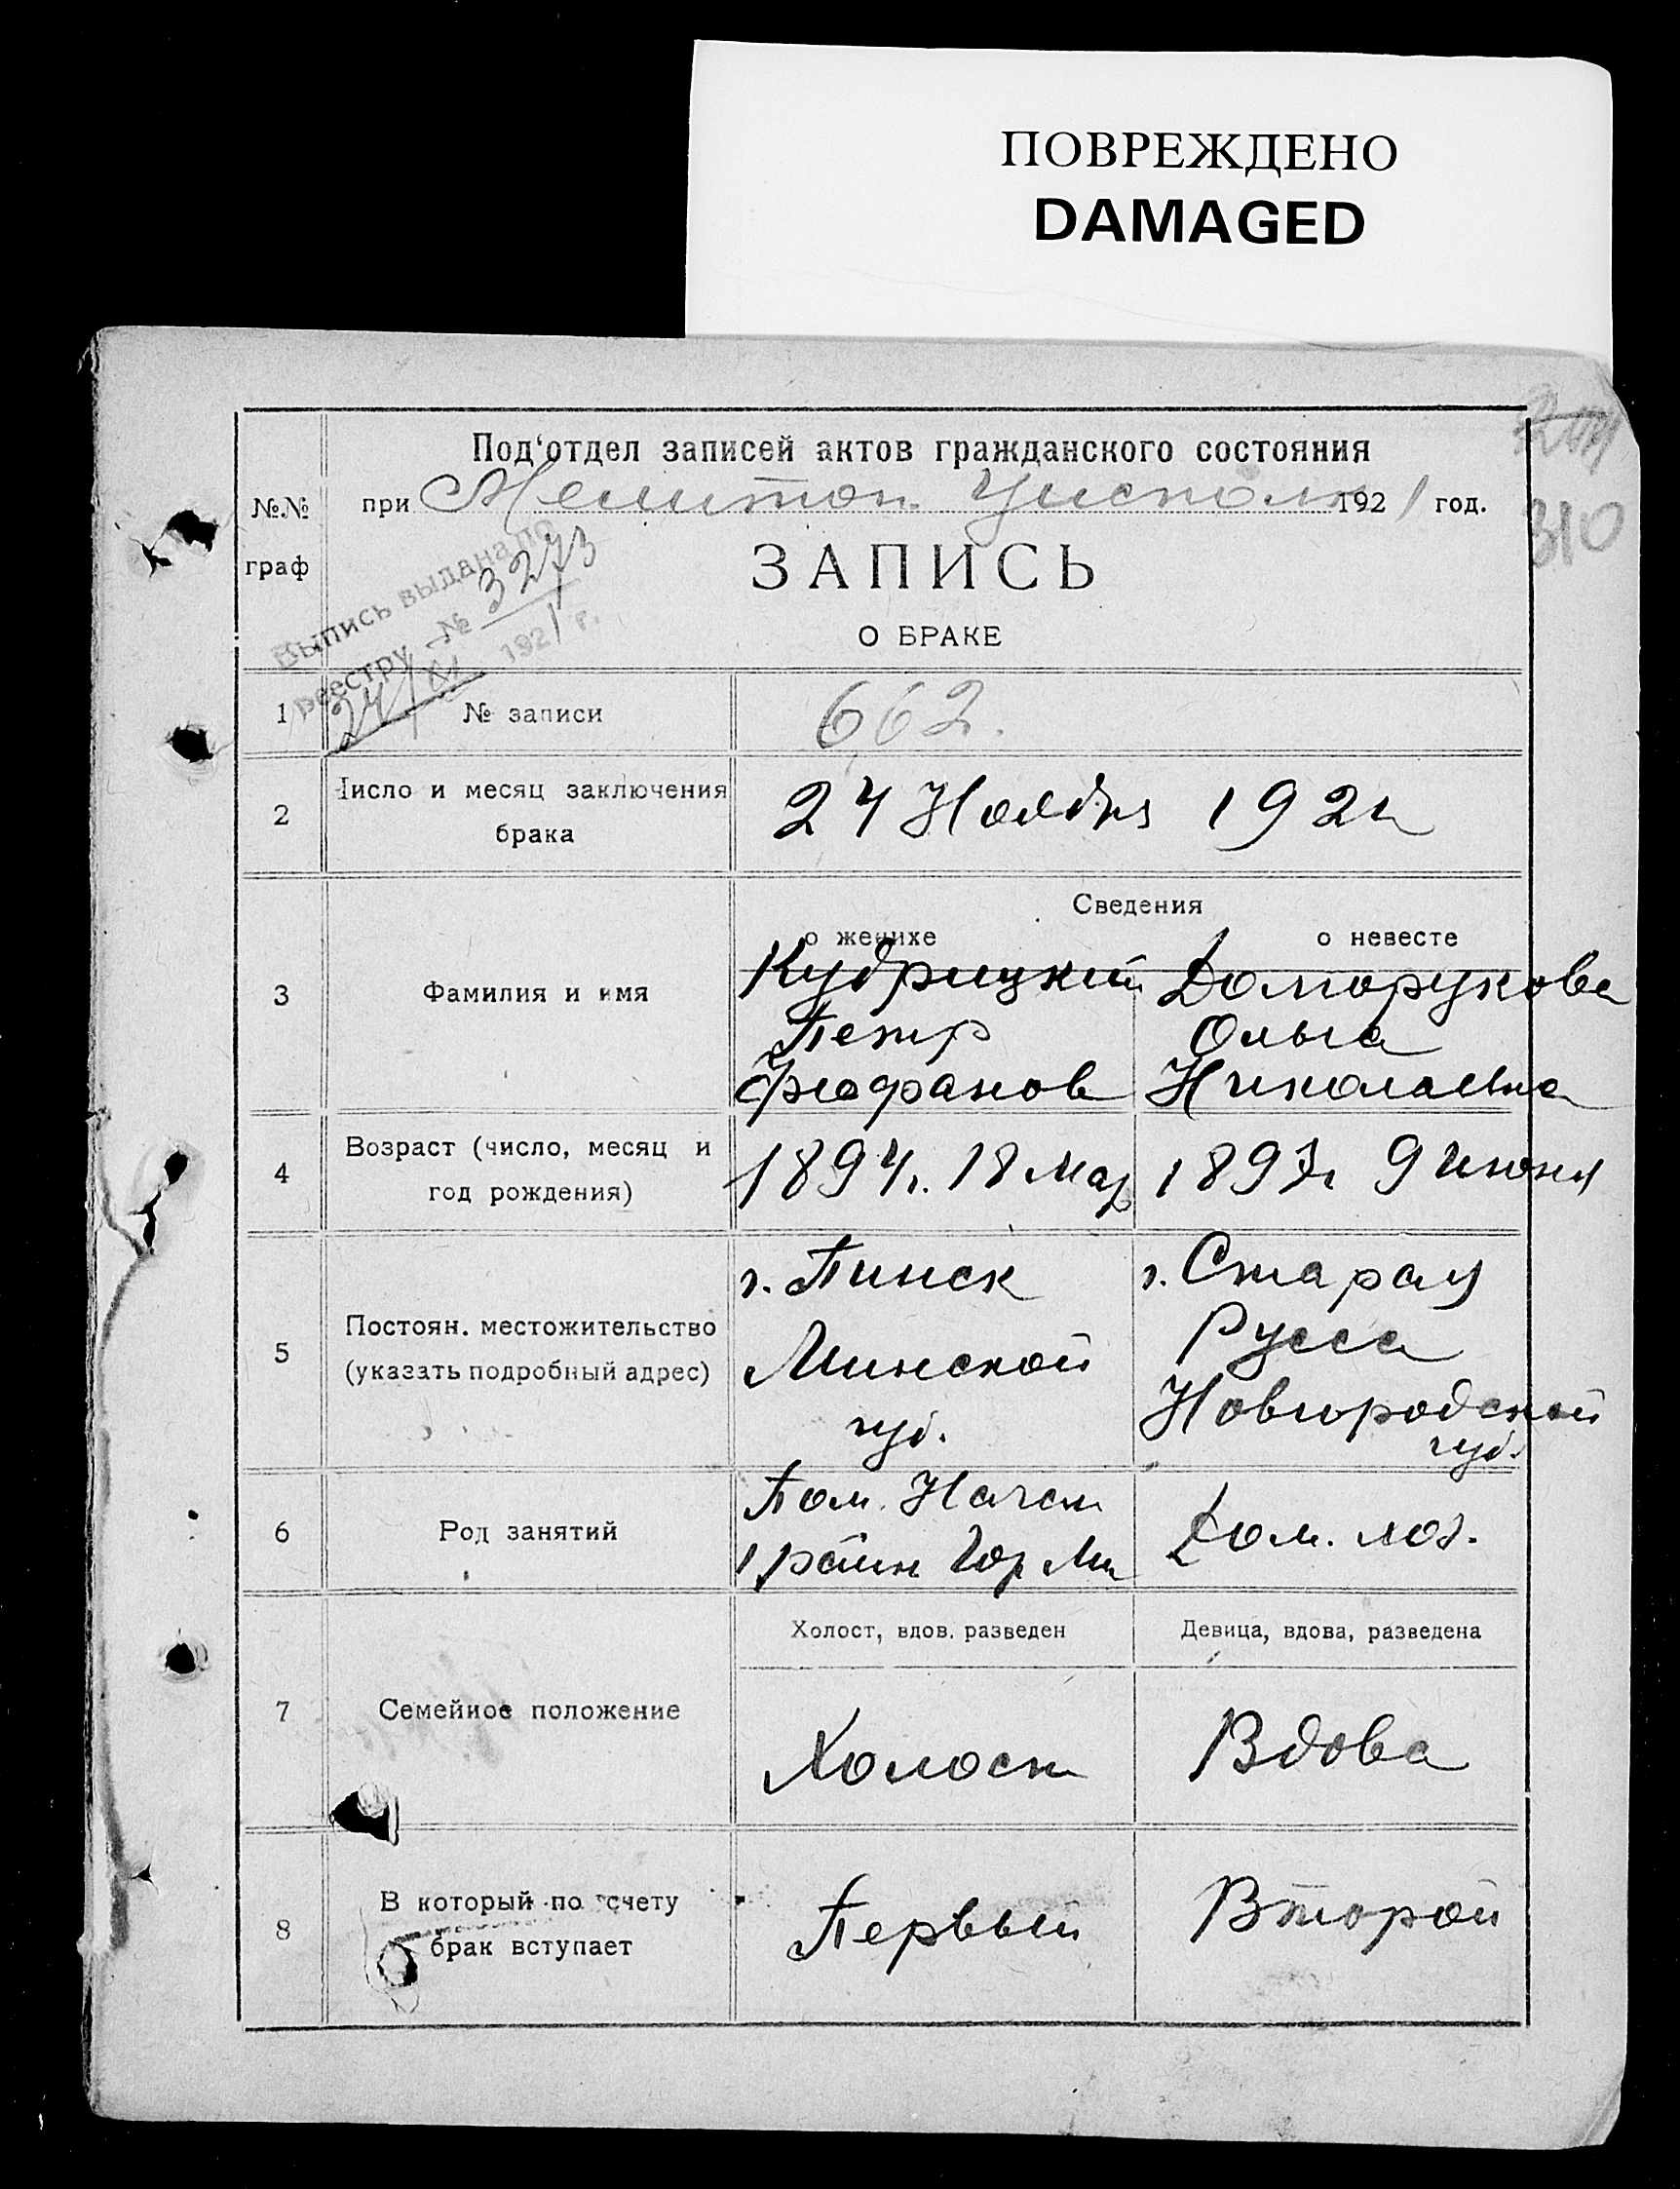 ПОВРЕЖДЕНО
DAMAGED
310
Под‘отдел записей актов гражданского состояния
№№ граф
при Мелитоп. Уисполк 1921 год.
ЗАПИСЬ
О БРАКЕ
Выпись выдана по
реестру № 3273
24/XI 1921 г.
1 № записи 662.
2 Число и месяц заключения
брака
24 Ноября 1921г
Сведения
о женихе о невесте
3 Фамилия и имя
Кудрицкий Доморукова
Петр Ольга
Феофанов Николаевна
4 Возраст (число, месяц и
год рождения)
1894г. 18 Мар 1897г 9 Июня
5 Постоян. местожительство
(указать подробный адрес)
г. Пинск г. Старая
Минской Русса
губ. Новгородской
губ.
6 Род занятий
Пом. Начал Дом. хоз.
1 район Гор Ми
7 Семейное положение
Холост, вдов. разведен Девица, вдова, разведена
Холост Вдова
8 В который по счету
брак вступает
Первый Второй